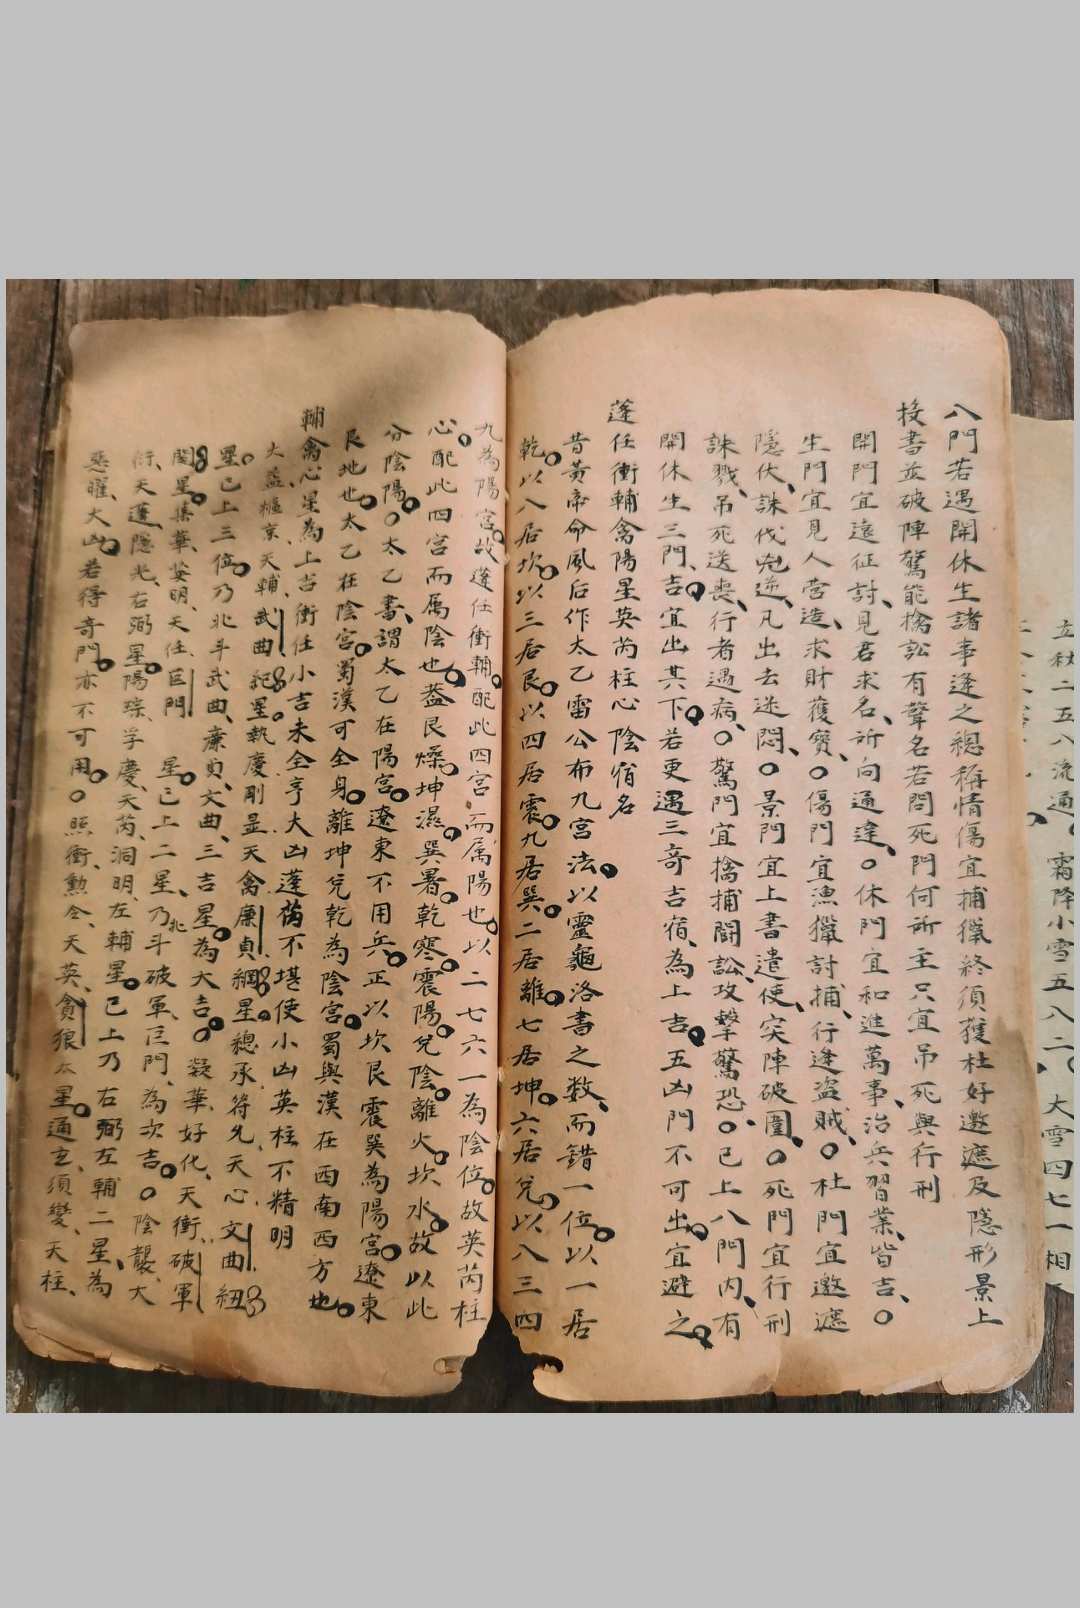 立秋二五八流通。霜降小雪五八二。大雪四七一相
八門若遇開休生諸事逢之總稱情傷宜捕獵終須獲杜好邀遮及隱形景上
投書並破陣驚能擒訟有聲名若問死門何所主只宜吊死與行刑
開門宜遠征討、見君求名、所向通達、○休門宜和進萬事、治兵習業、皆吉、○
生門宜見人營造、求財獲寶、○傷門宜漁獵討捕、行逢盜賊、○杜門宜邀遮
隱伏、誅伐兇逆、凡出去迷悶、○景門宜上書遣使、突陣破圍、○死門宜行刑
誅戮、吊死送喪、行者遇病、○驚門宜擒捕鬪訟、攻擊驚恐、○已上八門內、有
開休生三門、吉。宜出其下。若更遇三奇吉宿、為上吉。五凶門不可出。宜避之。
蓬任衝輔禽陽星英芮柱心陰宿名
昔黃帝命風后作太乙雷公布九宮法。以靈龜洛書之數、而錯一位。以一居
乾。以八居坎。以三居艮。以四居震。九居巽。二居離。七居坤。六居兌。以八三四
九為陽宮。故蓬任衝輔。配此四宮而属陽也。以二七六一為陰位。故英芮柱
心。配此四宮而属陰也。蓋艮燥。坤濕。巽暑。乾寒。震陽。兌陰。離火。坎水。故以此
分陰陽。○太乙書、謂太乙在陽宮。遼東不用兵。正以坎艮震巽為陽宮。遼東
艮地也。太乙在陰宮。蜀漢可全身。離坤兌乾為陰宮。蜀與漢在西南西方也。
輔禽心星為上吉衝任小吉未全亨大凶蓬芮不堪使小凶英柱不精明
天輔、武曲紀星執慶剛显天禽廉貞綱星總承符允天心文曲紐
星。已上三位。乃北斗武曲、廉貞、文曲、三吉星。為大吉。○凝華好化、天衝、破軍
関星。集華、晏明、天任巨門 星。已上二星、乃北斗破軍、巨門、為次吉。○陰襲、大
衍、天蓬、隱光、右弼星。陽琮、孚慶、天芮、洞明、左輔星。已上乃右弼左輔二星、為
惡曜、大凶。若得奇門。亦不可用。○照衝、勲仝、天英、貪狼 星。通玄、須變、天柱、